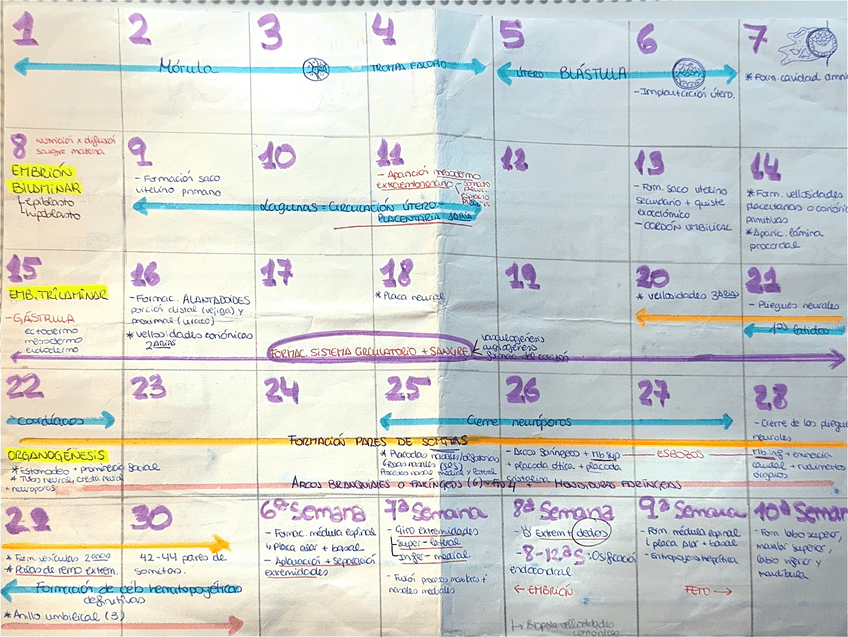 1 2 3 4 5 6 7
Mórula
TROMPA FALOPIO
ÚTERO BLÁSTULA
- Implantación útero.
* Form. cavidad amni
8 Nutrición x difusión
sangre materna
EMBRIÓN
BILAMINAR
epiblasto
hipoblasto
9
- Formación saco
vitelino primario
10
11
- Aparición mesodermo
extraembrionario
Lagunas = CIRCULACIÓN ÚTERO-
PLACENTARIA 1ARIA
12
13
- Form. saco vitelino
secundario + quiste
exocelómico
- CORDÓN UMBILICAL
14
* Form. vellosidades
placentarias o coriónic
primitivas
* Aparic. lámina
procordal
15
EMB. TRILAMINAR
- GÁSTRULA
ectodermo
mesodermo
endodermo
16
- Formac. ALANTOIDES
porción distal (vejiga) y
proximal (uraco)
* Vellosidades coriónicas
2ARIAS
17
18
* Placa neural
19
20
* Vellosidades 3ARIAS
21
- Pliegues neurales
1os latidos
FORMAC. SISTEMA CIRCULATORIO + SANGRE
vasculogénesis
angiogénesis
formac. del corazón
22 23 24 25 26 27 28
cardíacos
Cierre neuróporos
- Cierre de los pliegues
neurales
FORMACIÓN PARES DE SOMITAS
ORGANOGÉNESIS
* Estomodeo + prominencia facial
* Tubo neural, cresta neural
+ neuroporos
* Placodas nasales/olfatorias
Procesos nasal medial y lateral
- Arcos faríngeos + mb sup
ESBOZOS
mb inf + eminencia
caudal + rudimentos
órganos
+ placoda ótica + placoda
cristalino
ARCOS BRANQUIALES O FARÍNGEOS (6) + HENDIDURAS FARÍNGEAS
29
* Form. vesículas 2arias
* Palas de remo extrem.
Formación de céls hematopoyéticas
definitivas
* Anillo umbilical (3)
30
42-44 pares de
somitas.
6ª Semana
- Formac. médula espinal
placa alar + basal
- Aplanación + Separación
extremidades
7ª Semana
- Giro extremidades
Super - lateral
Infe - medial
- Fusión procesos maxilares +
nasales mediales
8ª Semana
- Extrem + dedos
- 8-12ª S - Osificación
endocondral
← EMBRIÓN
Biopsia vellosidades
coriónicas
9ª Semana
- Form. médula espinal
placa alar + basal
- Eritropoyesis hepática
FETO →
10ª Seman
- Form. labio superior,
maxilar superior,
labio inferior y
mandíbula